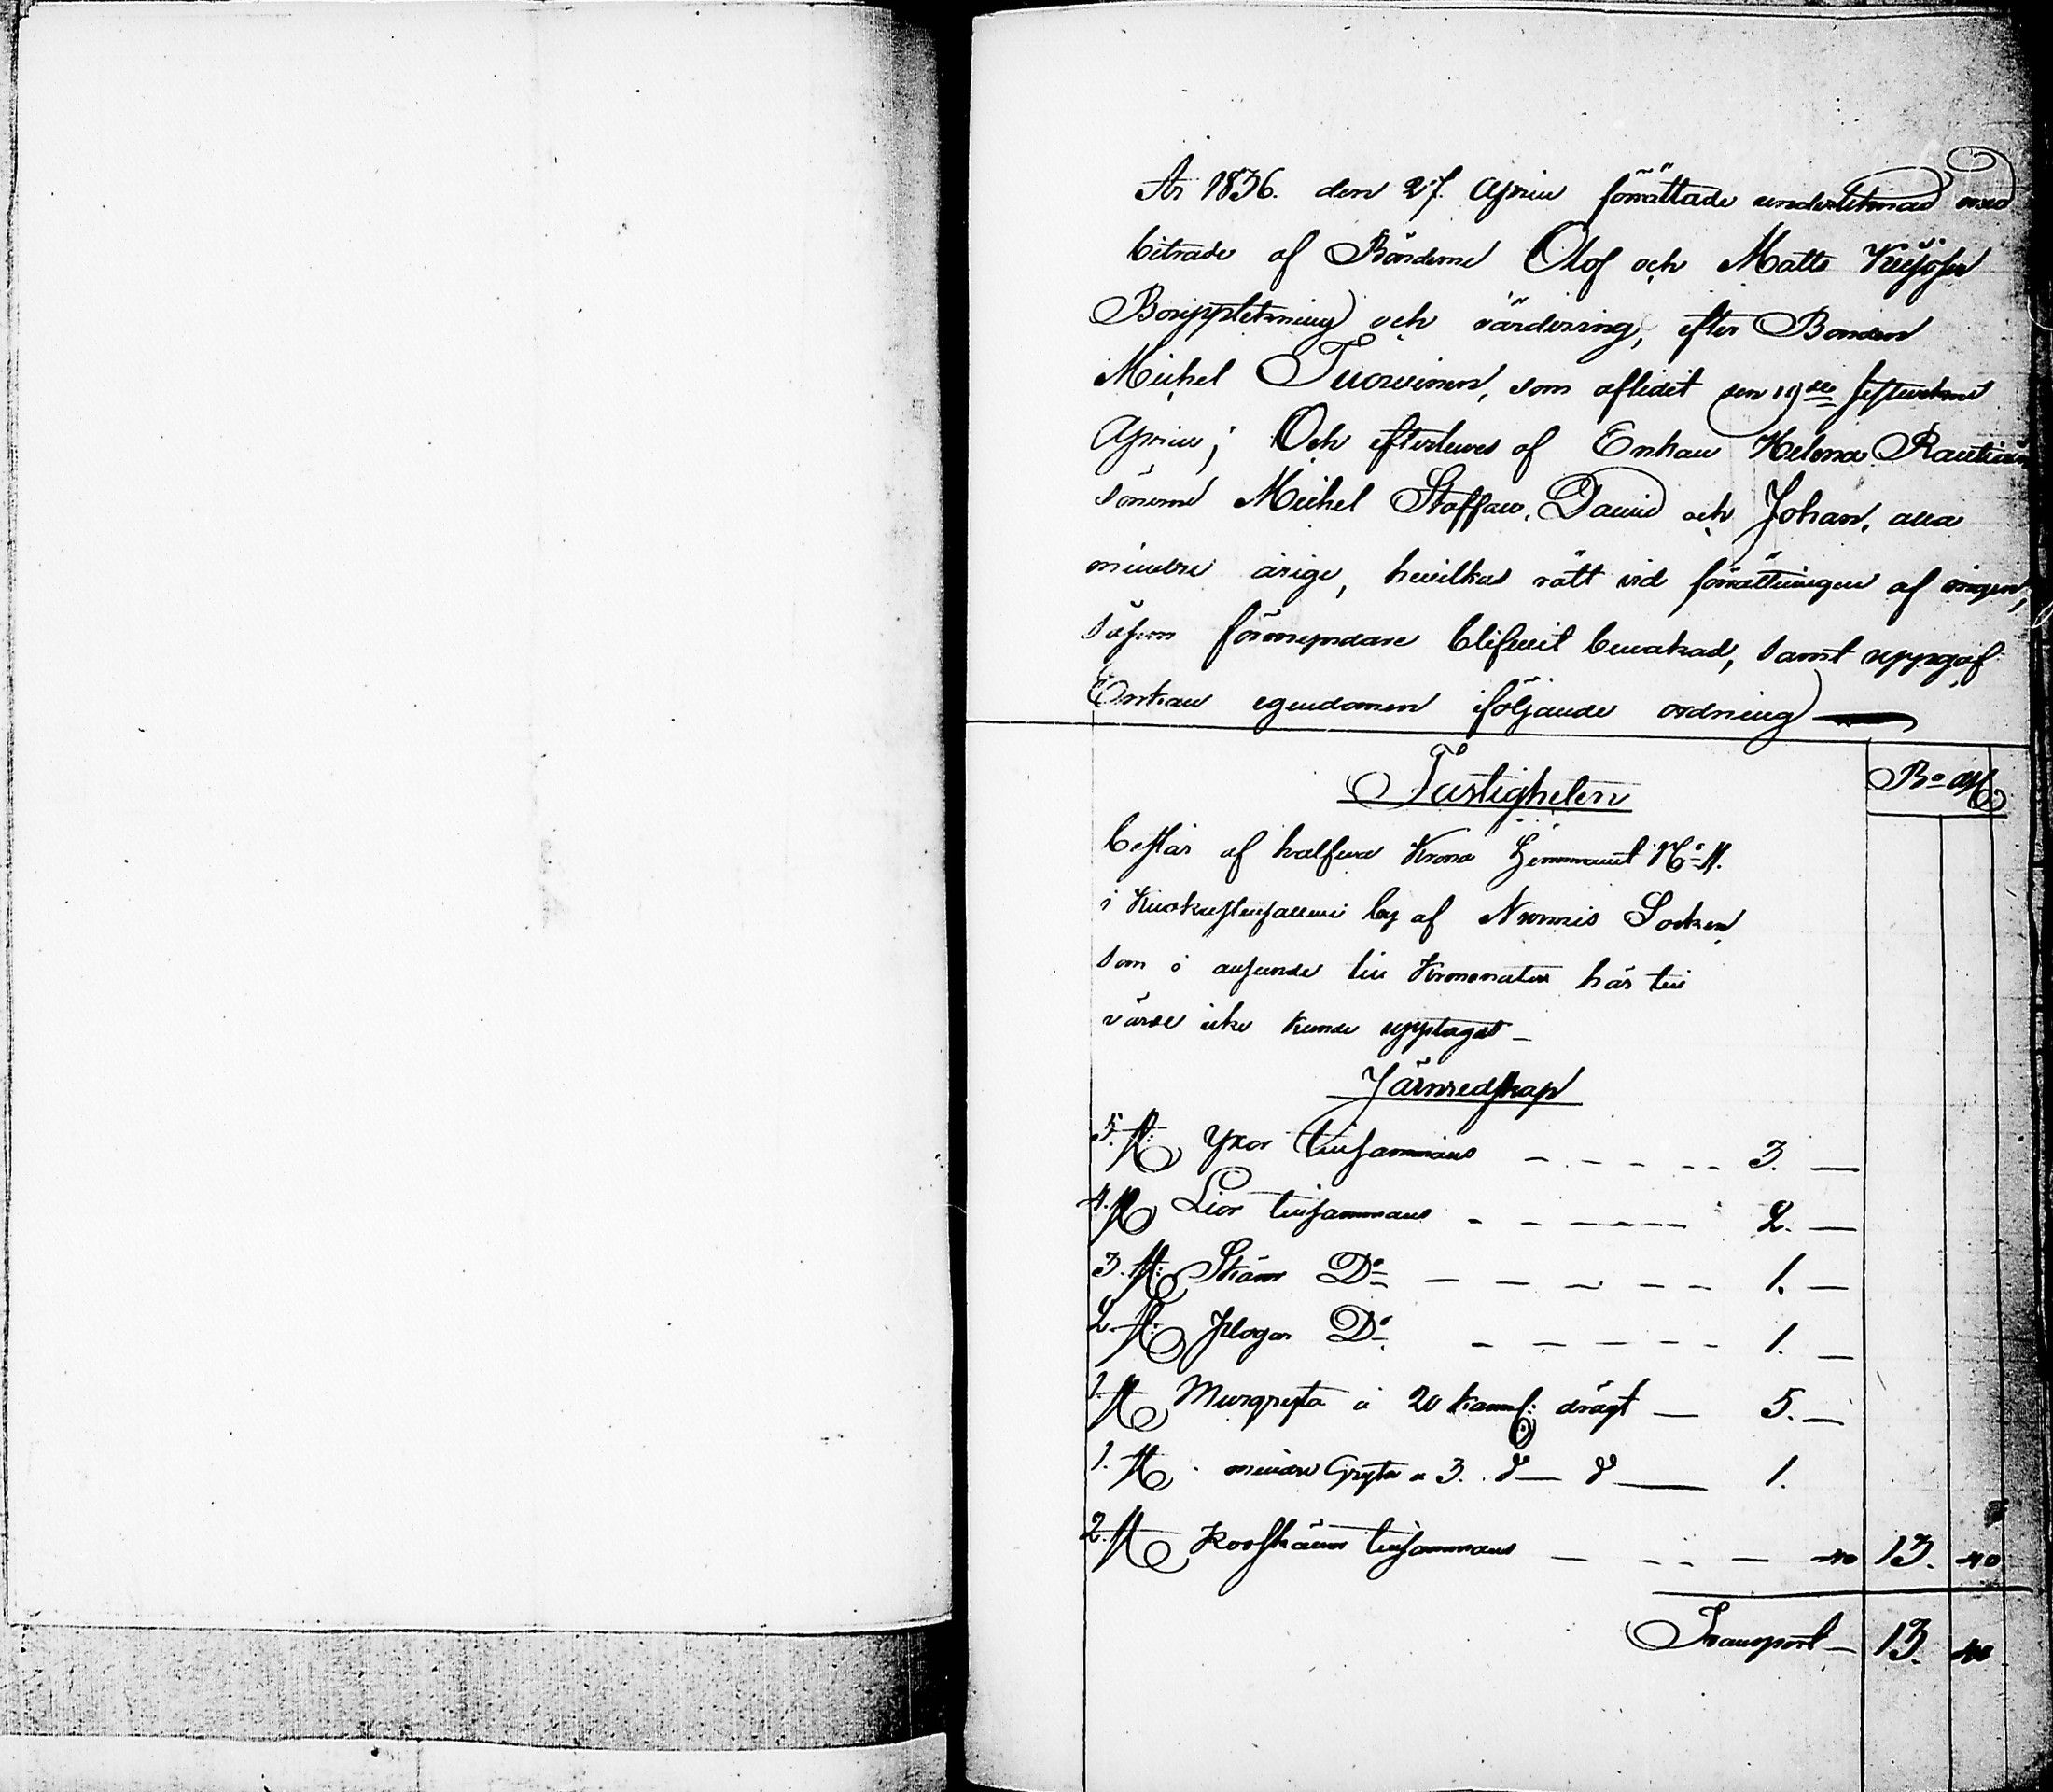 År 1836. den 27. April förrättade undertecknad med
biträde af Bönderne Olof och Matts
Bouppteckning och värdering, efter Bonden
Michel Tuovinen, som aflidit den 19de sistvekne
April; Och efterleves af Enkan Helena Rautiain
sönerne Michel Staffan, David och Johan, alla
mindre årige, hvilkas rätt vid förrättningen af ingen,
såsom förmyndare blifvit bevakad, samt uppgaf
Enkan egendomen iföljande ordning —
Fastigheten
Ro
består af halfva Krono Hemmanet No 11.
i by af Nurmis Socken
som i anseende till Krononatur här till
värde icke kunde upptagas —
Järnredskap
5. st: Yxor tillsammans — — — 3. —
4. st Lior tillsammans — — — 2. —
3. st: Skäror Do — — — 1. —
2. st: Plogar Do — — — 1. —
1. st Murgryta à 20 kann: drägt — 5. —
1. st mindre Gryta a 3. d— d— 1.
2. st tillsammans — — — 40 13. 40
Transport — 13. 40